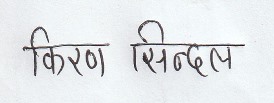 किरण सिन्दल